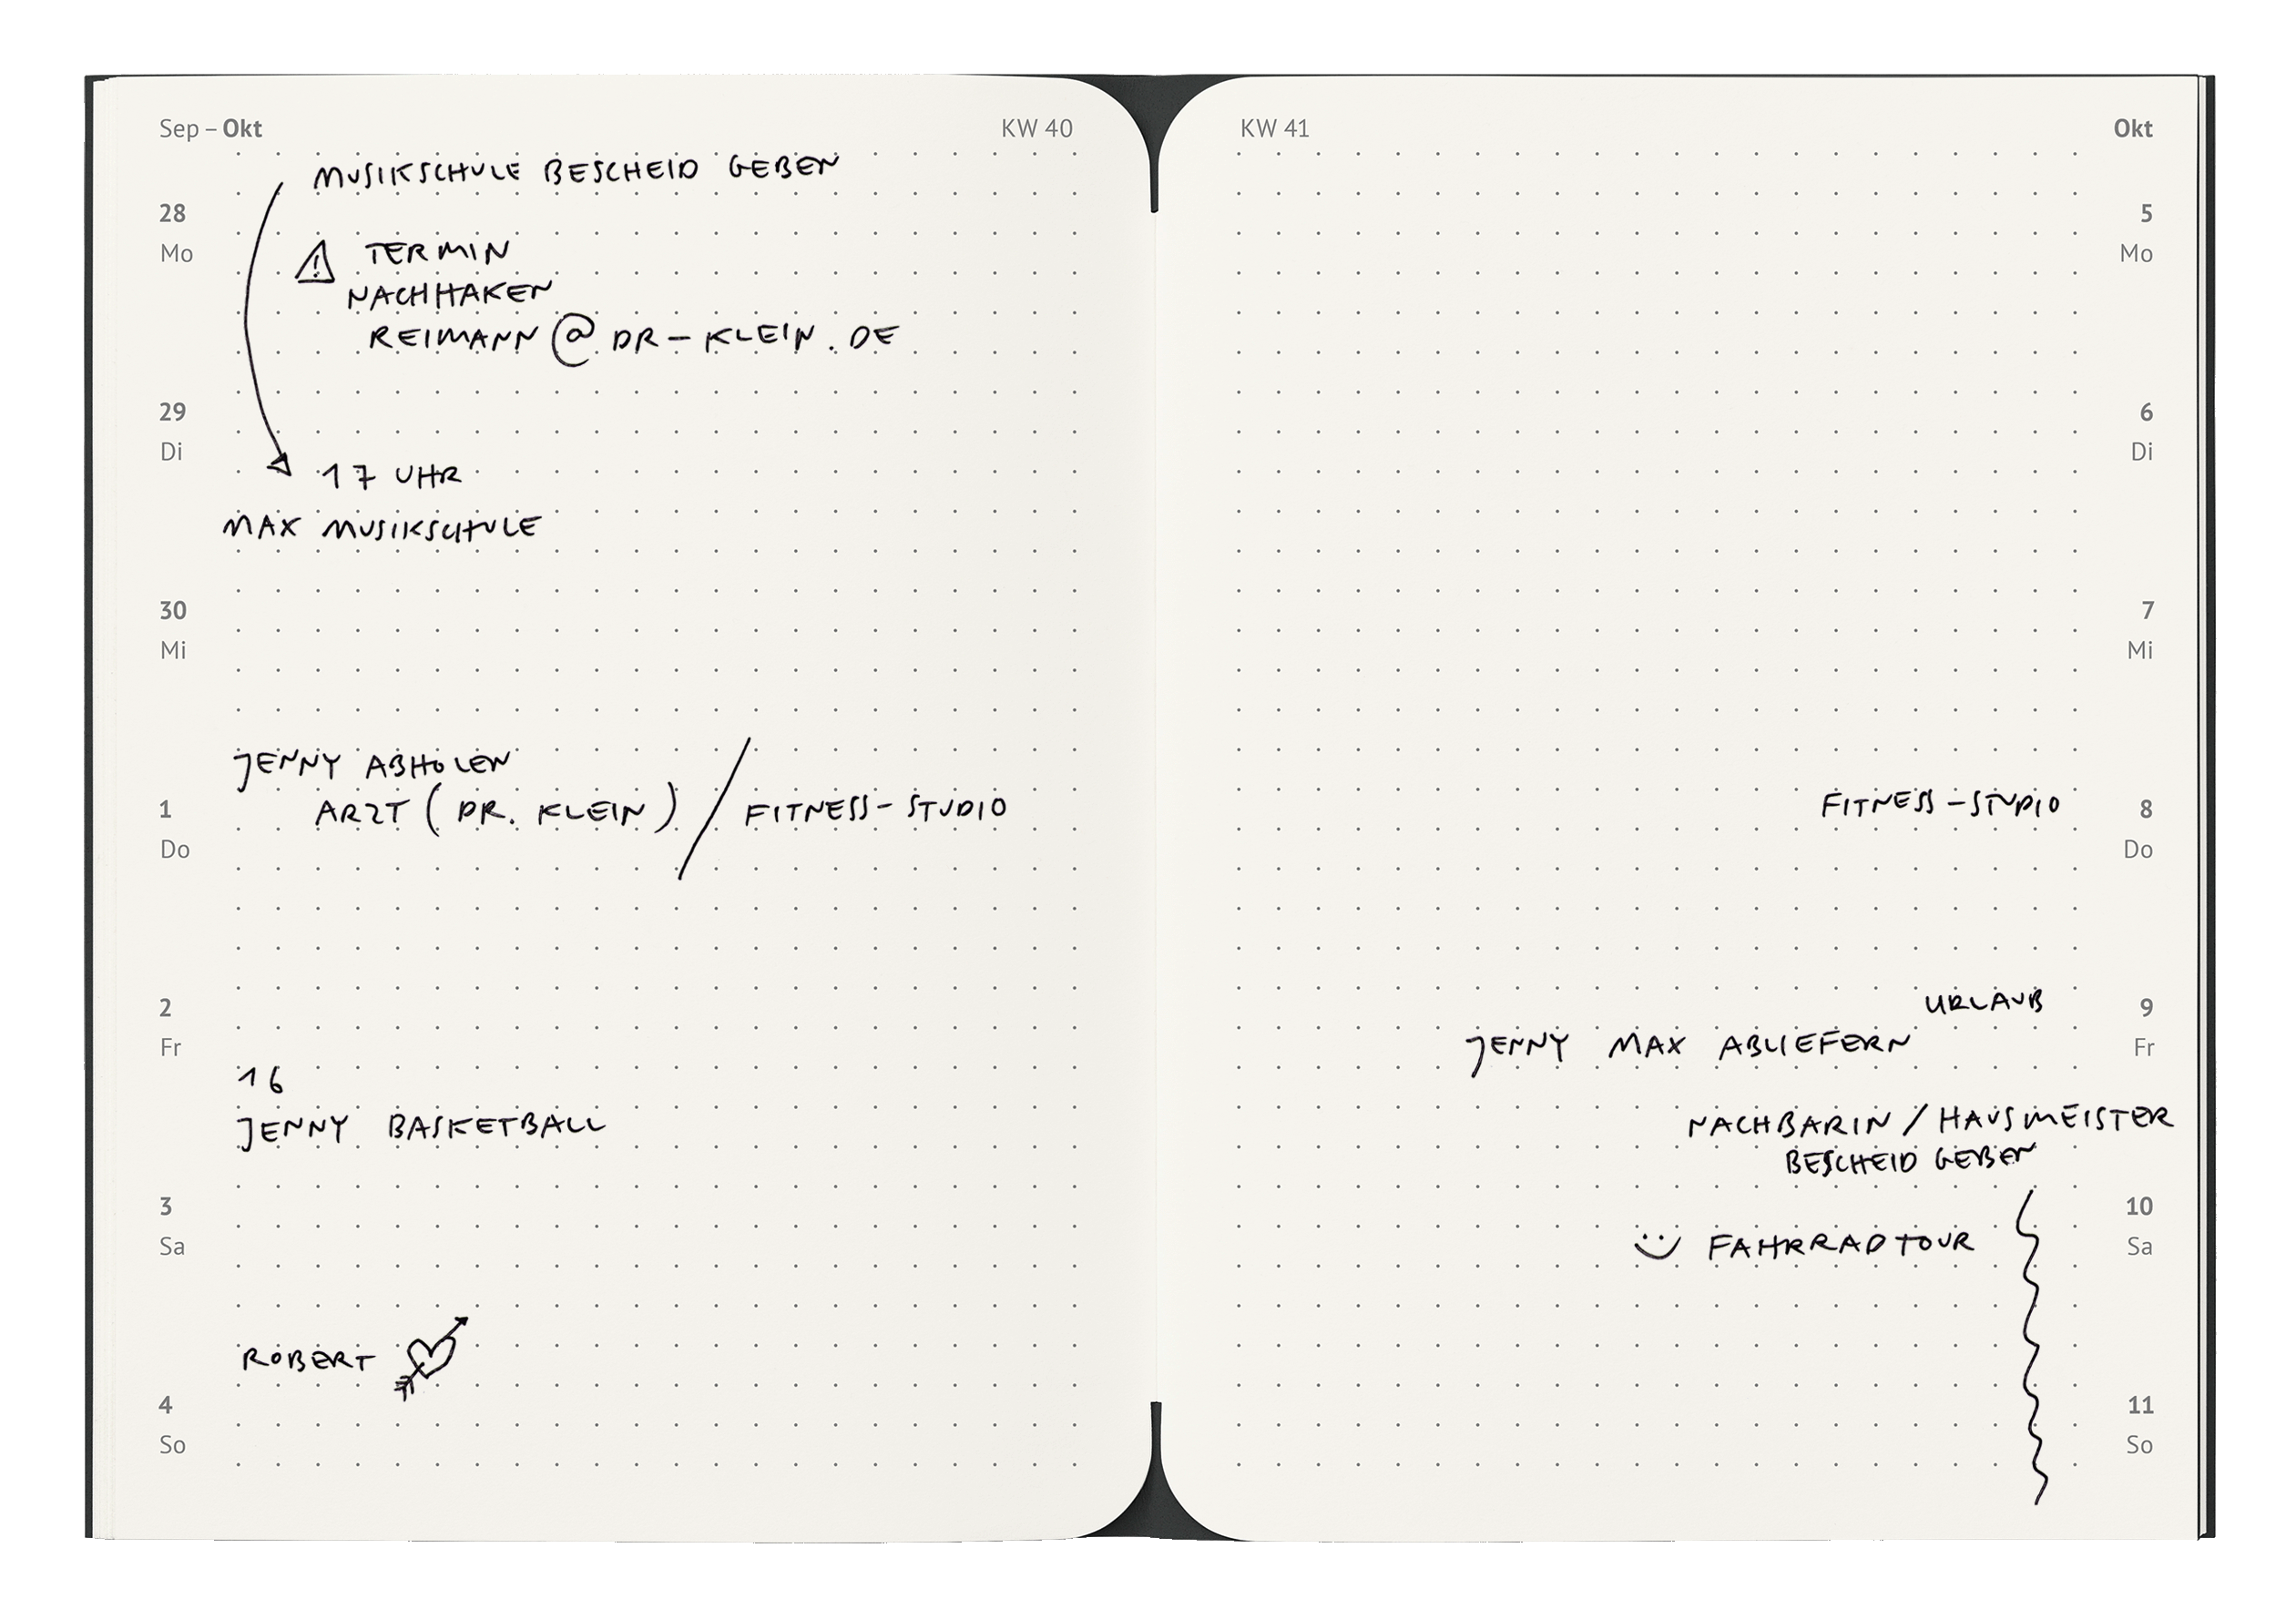 Sep – Okt
KW 40
MUSIKSCHULE BESCHEID GEBEN
28
Mo
TERMIN
NACHHAKEN
REIMANN@DR-KLEIN.DE
29
Di
17 UHR
MAX MUSIKSCHULE
30
Mi
JENNY ABHOLEN
1
ARZT (DR. KLEIN) / FITNESS-STUDIO
Do
2
Fr
16
JENNY BASKETBALL
3
Sa
ROBERT
4
So
KW 41
Okt
5
Mo
6
Di
7
Mi
FITNESS-STUDIO
8
Do
URLAUB
9
JENNY MAX ABLIEFERN
Fr
NACHBARIN / HAUSMEISTER
BESCHEID GEBEN
10
FAHRRADTOUR
Sa
11
So